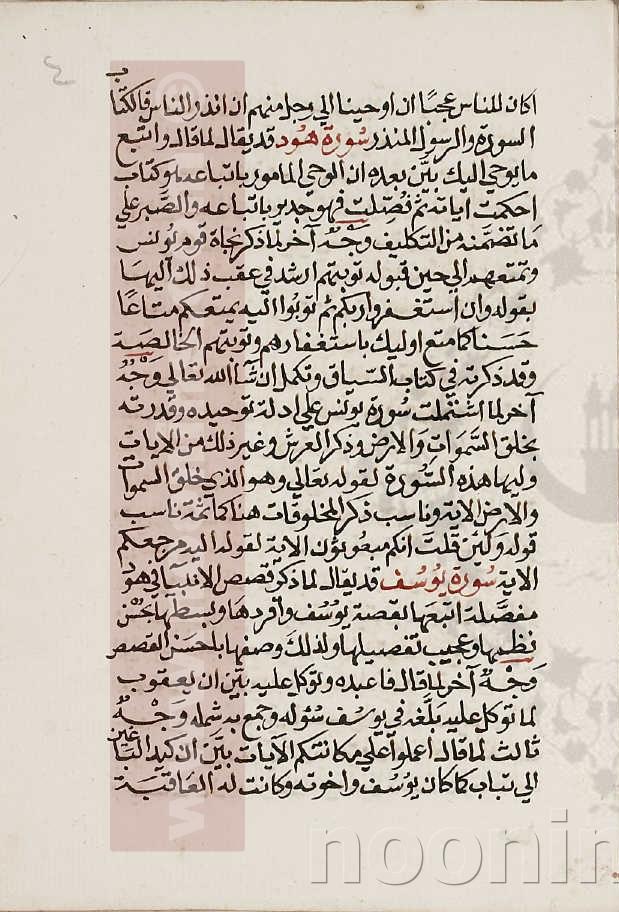 ٤
ب
اكان للناس عجبا ان اوحينا الي رجل منهم ان انذر الناس فالكتاب
السورة والرسول المنذر سورة هود قد يقال لما قال واتبع
ما يوحي اليك بين بعده ان الوحي المامور باتباعه هو كتاب
احكمت اياته ثم فصلت فهو جدير باتباعه والصبر علي
ما تضمنه من التكليف وجه آخر لما ذكر نجاة قوم يونس
وتمتعهم الي حين قبوله توبتهم ارشد في عقب ذلك اليها
بقوله وان استغفروا ربكم ثم توبوا اليه يمتعكم متاعا
حسنا كما متع اوليك باستغفارهم وتوبتهم الخالصة
وقد ذكرته في كتاب السياق وتكمل ان شآ الله تعالي وجه
آخر لما اشتملت سورة يونس علي ادلة توحيده وقدرته
بخلق السموات والارض وذكر العرش وغير ذلك من الايات
وليها هذه السورة لقوله تعالي وهو الذي خلق السموات
والارض الاية وناسب ذكر المخلوقات هنا كما ثمة ناسب
قوله ولئن قلت انكم مبعوثون الاية لقوله اليه مرجعكم
الاية سورة يوسف قد يقال لما ذكر قصص الانبيآ في هود
مفصلة اتبعها بقصة يوسف وافردها وبسطها بحسن
نظمها وعجيب تفصيلها ولذلك وصفها باحسن القصص
وجه آخر لما قال فاعبده وتوكل عليه بين ان يعقوب
لما توكل عليه بلغه في يوسف سئوله وجمع به شمله وجه
ثالث لما قال اعملوا علي مكانتكم الآيات بين ان كيد الباغين
الي تباب كما كان يوسف واخوته وكانت له العاقبة
noonin